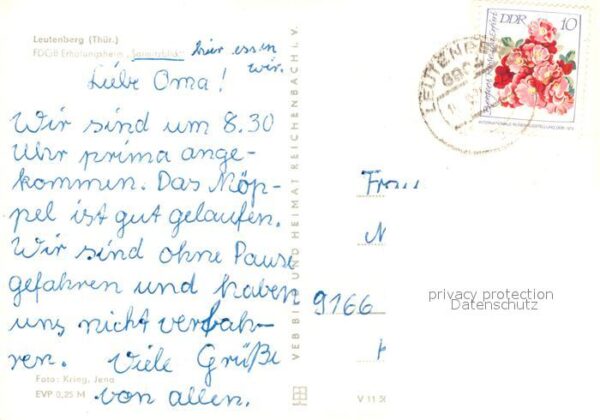 Leutenberg (Thür.)
FDGB Erholungsheim „Sormitzblick"
hier essen
wir.
Liebe Oma!
Wir sind um 8.30
Uhr prima ange-
kommen. Das Möp-
pel ist gut gelaufen.
Wir sind ohne Pause
gefahren und haben
uns nicht verfah-
ren. Viele Grüße
von allen.
Foto: Kring, Jena
EVP 0,25 M
VEB BILD UND HEIMAT REICHENBACH i. V.
V 11 50
DDR 10
INTERNATIONALE ROSENAUSSTELLUNG DDR 1972
LEUTENBERG
Frau
9166
privacy protection
Datenschutz